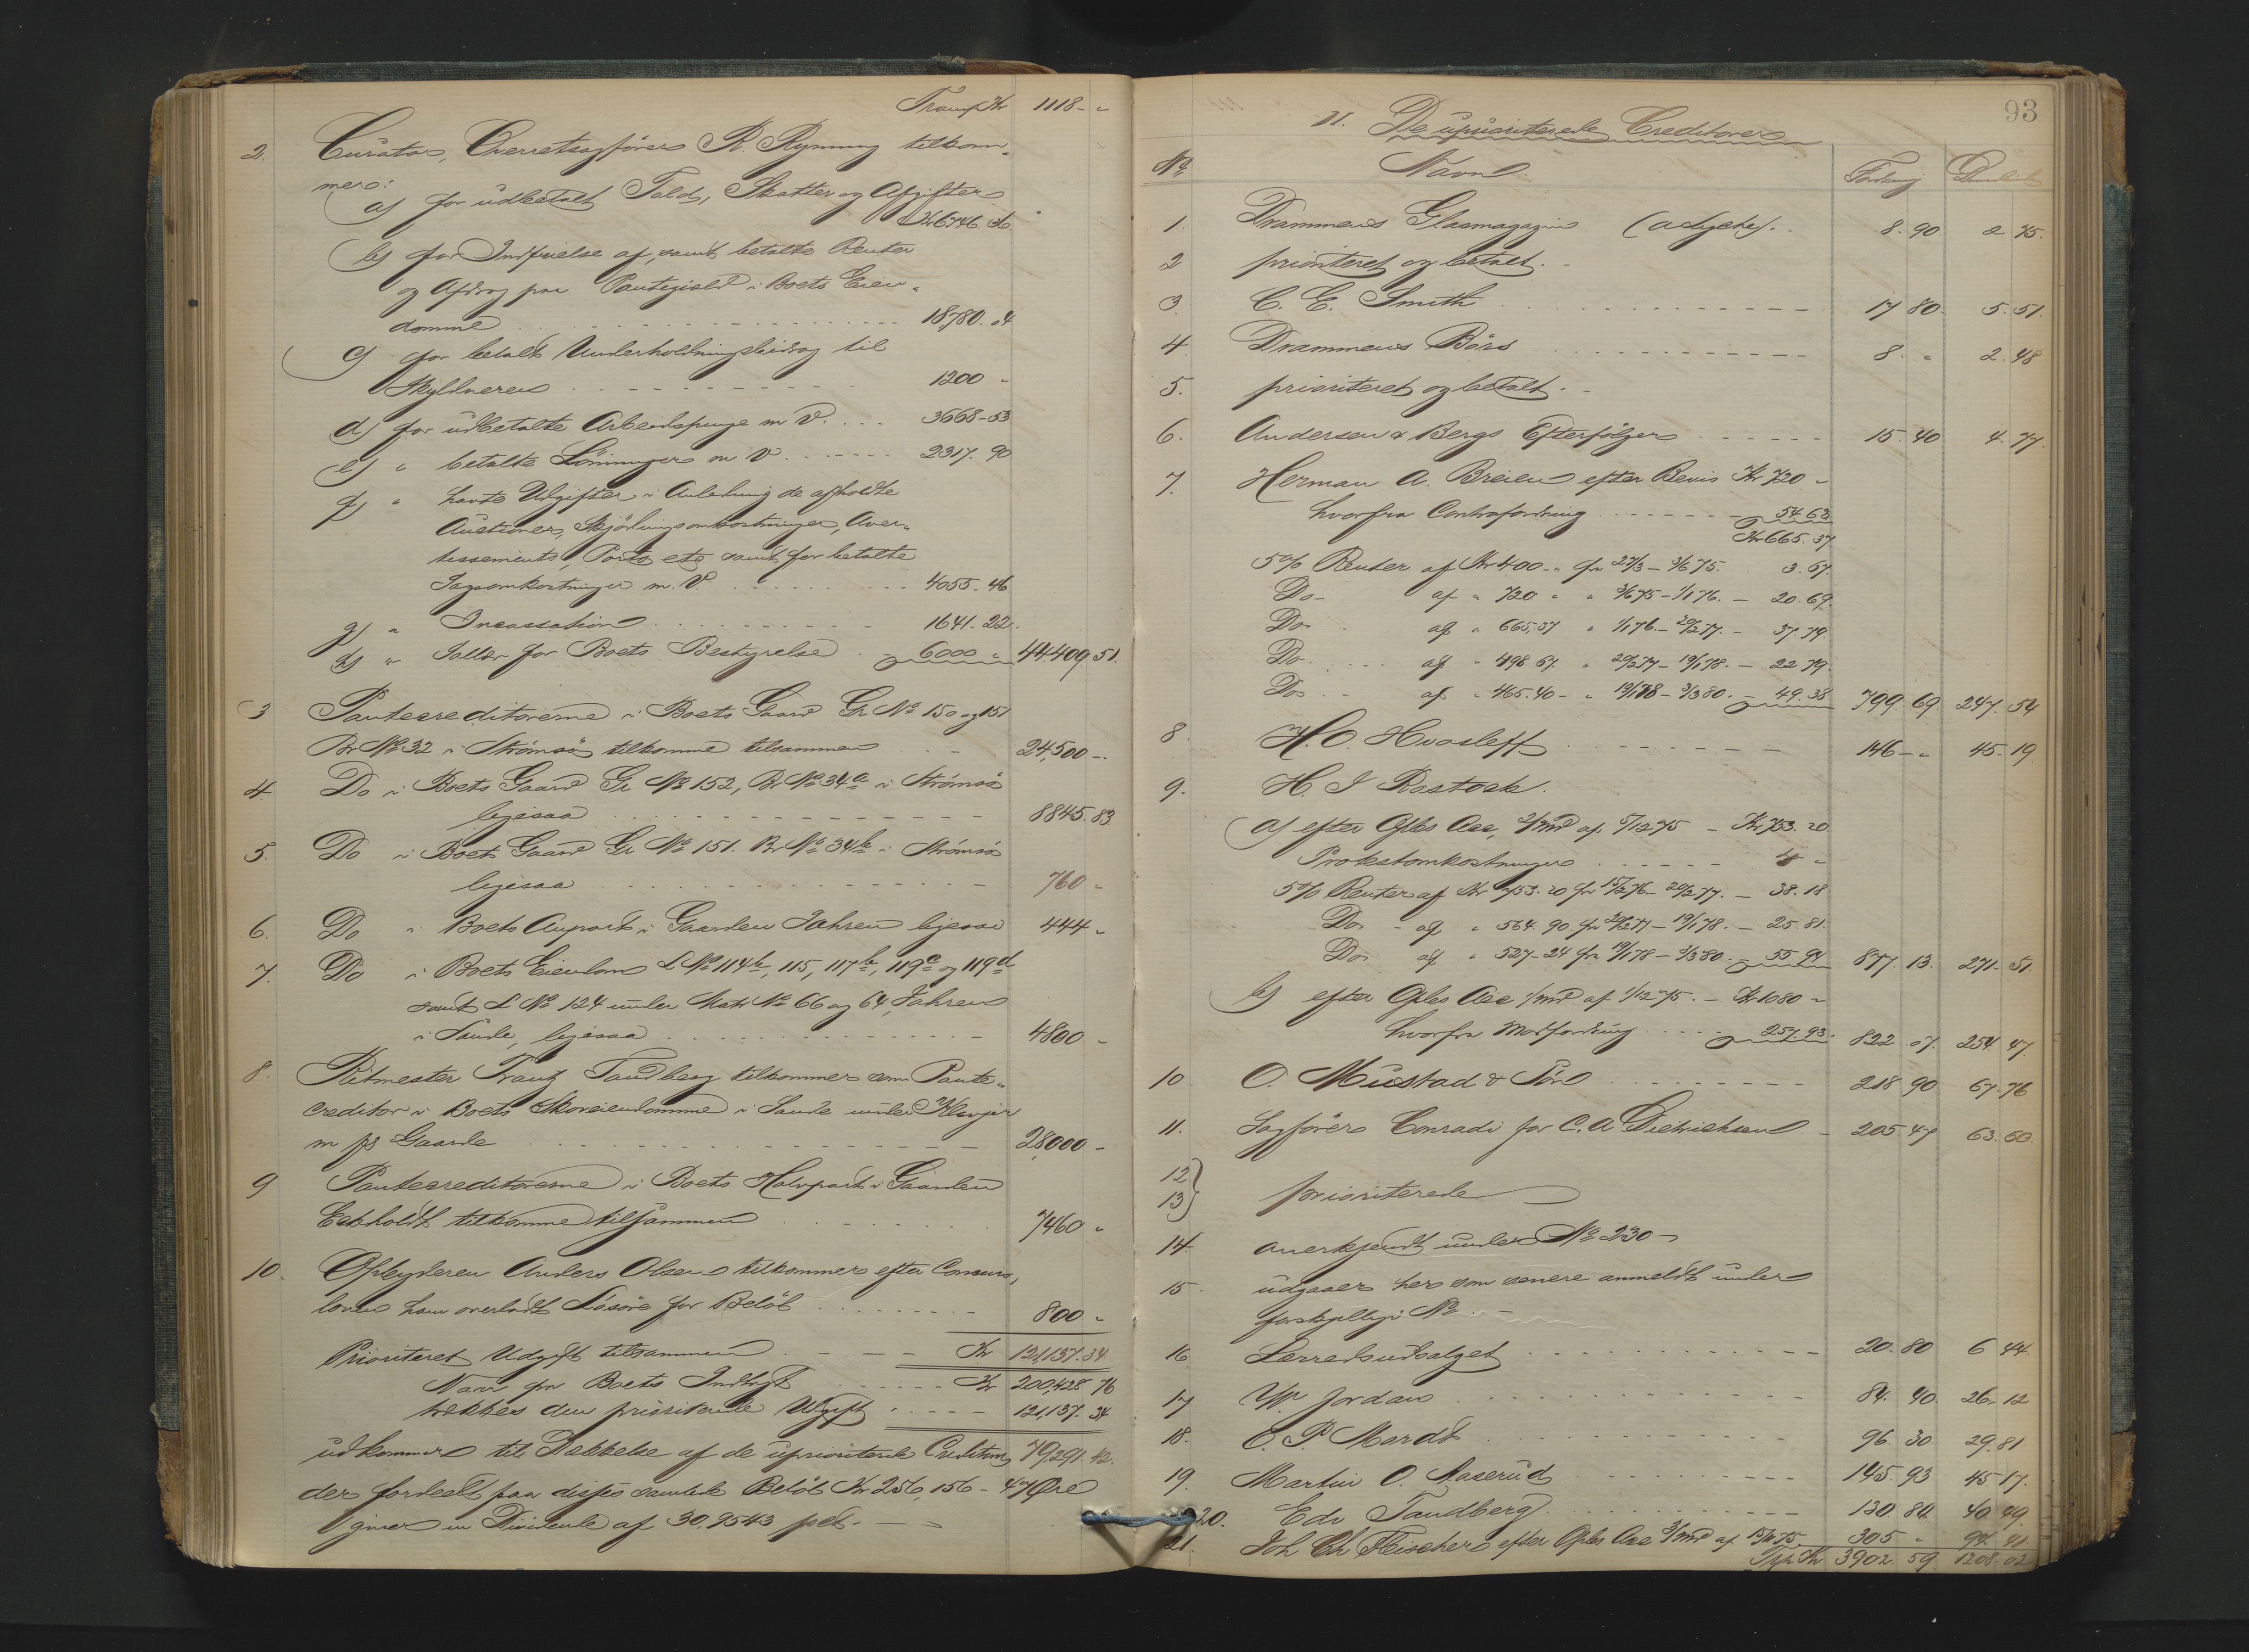 Transp Kr 1118 - "
2. Curator, Overretssagfører R. Rynning tilkom-
mer:
a) for udbetalt Told, Skatter og Afgifter
Kr 6746. 36
b) for Indfrielse af, samt betalte Renter
og Afdrag paa Pantegjeld i Boets Eien-
domme 18,780. 04
c) for betalt Underholdningsbidrag til
Skyldneren 1200 "
d) for udbetalte Arbeidspenge m. V. 3668 - 53
e) " betalte Lønninger m V. 2317. 90
f) " havte Udgifter i Anledning de afholdte
Auctioner, Skjødningsomkostninger, Aver-
tissements, Porto etc samt for betalte
Sagsomkostninger m. V. 4055. 46
g) " Incassation 1641. 22.
h) " Salær for Boets Bestyrelse 6000 " 44,409 51.
3 Pantecreditorerne i Boets Gaard Gr No 150 og 151
Br No 32 i Strømsø tilkomme tilsammen 24,500 -
4. Do i Boets Gaard Gr No 152, Br No 34a i Strømsø
ligesaa 8845. 83
5. Do i Boets Gaard Gr No 151. Br No 34b i Strømsø
ligesaa 760 "
6. Do i Boets Anpart i Gaarden Jahren ligesaa 444 "
7. Do i Boets Eiendom L No 114b, 115, 117b, 119c og 119d
samt L No 124 under Matr No 66 og 64, Jahren
i Sande, ligesaa 4800 -
8. Ritmester Frantz Tandberg tilkommer som Pante-
creditor i Boets Skoveiendomme i Sande under Klevjer
m fl Gaarde 28,000 -
9 Pantecreditorerne i Boets Halvpart i Gaarden
Eekholdt tilkomme tilsammen 7460 "
10. Opbyderen Anders Olsen tilkommer efter Concurs-
loven ham overladt Løsøre for Beløb 800 "
Prioriteret Udgift tilsammen Kr 121,137. 34
Naar fra Boets Indtægt Kr 200,428 76
trækkes den prioriterede Udgift 121,137. 34
udkommer til Dækkelse af de uprioriterede Creditorer 79,291. 42.
der fordeelt paa disses samlede Beløb Kr 256,156 - 47 Øre
giver en Dividende af 30.9543 pCt.
93
II. De uprioriterede Creditorer
No Navn. Fordring Dividende
1. Drammens Glasmagazin (A Lyche). 8. 90 2 75.
2 prioriteret og betalt.
3. C. E. Smith 17 80. 5. 51.
4. Drammens Børs 8. " 2. 48
5. prioriteret og betalt.
6. Andersen & Bergs Efterfølger 15. 40 4. 77.
7. Herman A. Breien efter Bevis Kr 720 "
hvorfra Contrafordring 54. 63
Kr 665. 37
5% Renter af Kr 400 - " fra 27/3 - 3/6 75. 3. 67.
Do af " 720 " " 3/6 75 - 1/1 76. - 20. 69.
Do af " 665,37 " 1/1 76. - 20/2 77. - 37. 79.
Do af " 498 67. " 20/2 77 - 19/1 78. - 22 79.
Do af " 465. 40 - " 19/1 78 - 3/3 80. - 49. 38 799. 69 247. 54
8. H. O. Hvosleff 146 - " 45. 19
9. H. J Rostock.
a) efter Opbs Acc, 2/md af 5/12 75 - Kr 753. 20
Protestomkostninger 4 "
5% Renter af Kr 753. 20 fra 15/2 76 - 20/2 77. - 38. 18
Do af " 564. 90. fra 20/2 77 - 19/1 78. - 25. 81.
Do af " 527 - 24 fra 19/1 78 - 3/3 80. - 55. 94 877. 13. 271. 51.
b) efter Opbs Acc 1/md af 1/12 75. - Kr 1080 "
hvorfra Modfordring 257. 93. 822. 07. 254 47.
10 O. Mustad & Søn 218 90 67. 76
11. Sagfører Conradi for C. A Dietrichson 205. 47 63. 60.
12}
13} prioriterede
14. anerkjendt under No 230
15. udgaaer her som senere anmeldt under
forskjellige No
16 Lærredsudsalget 20. 80 6 44.
17 W. Jordan 84. 40. 26. 12
18. C. P. Mardt 96. 30 29. 81
19. Martin O. Aaserud 145. 93 45. 17.
20. Edv Tandberg 130. 80. 40. 49.
21. Joh Ch Fleischer efter Opbs Acc 3/md af 15/11 75. 305 " 94. 41
Tsp. Kr 3902. 59 1208. 02